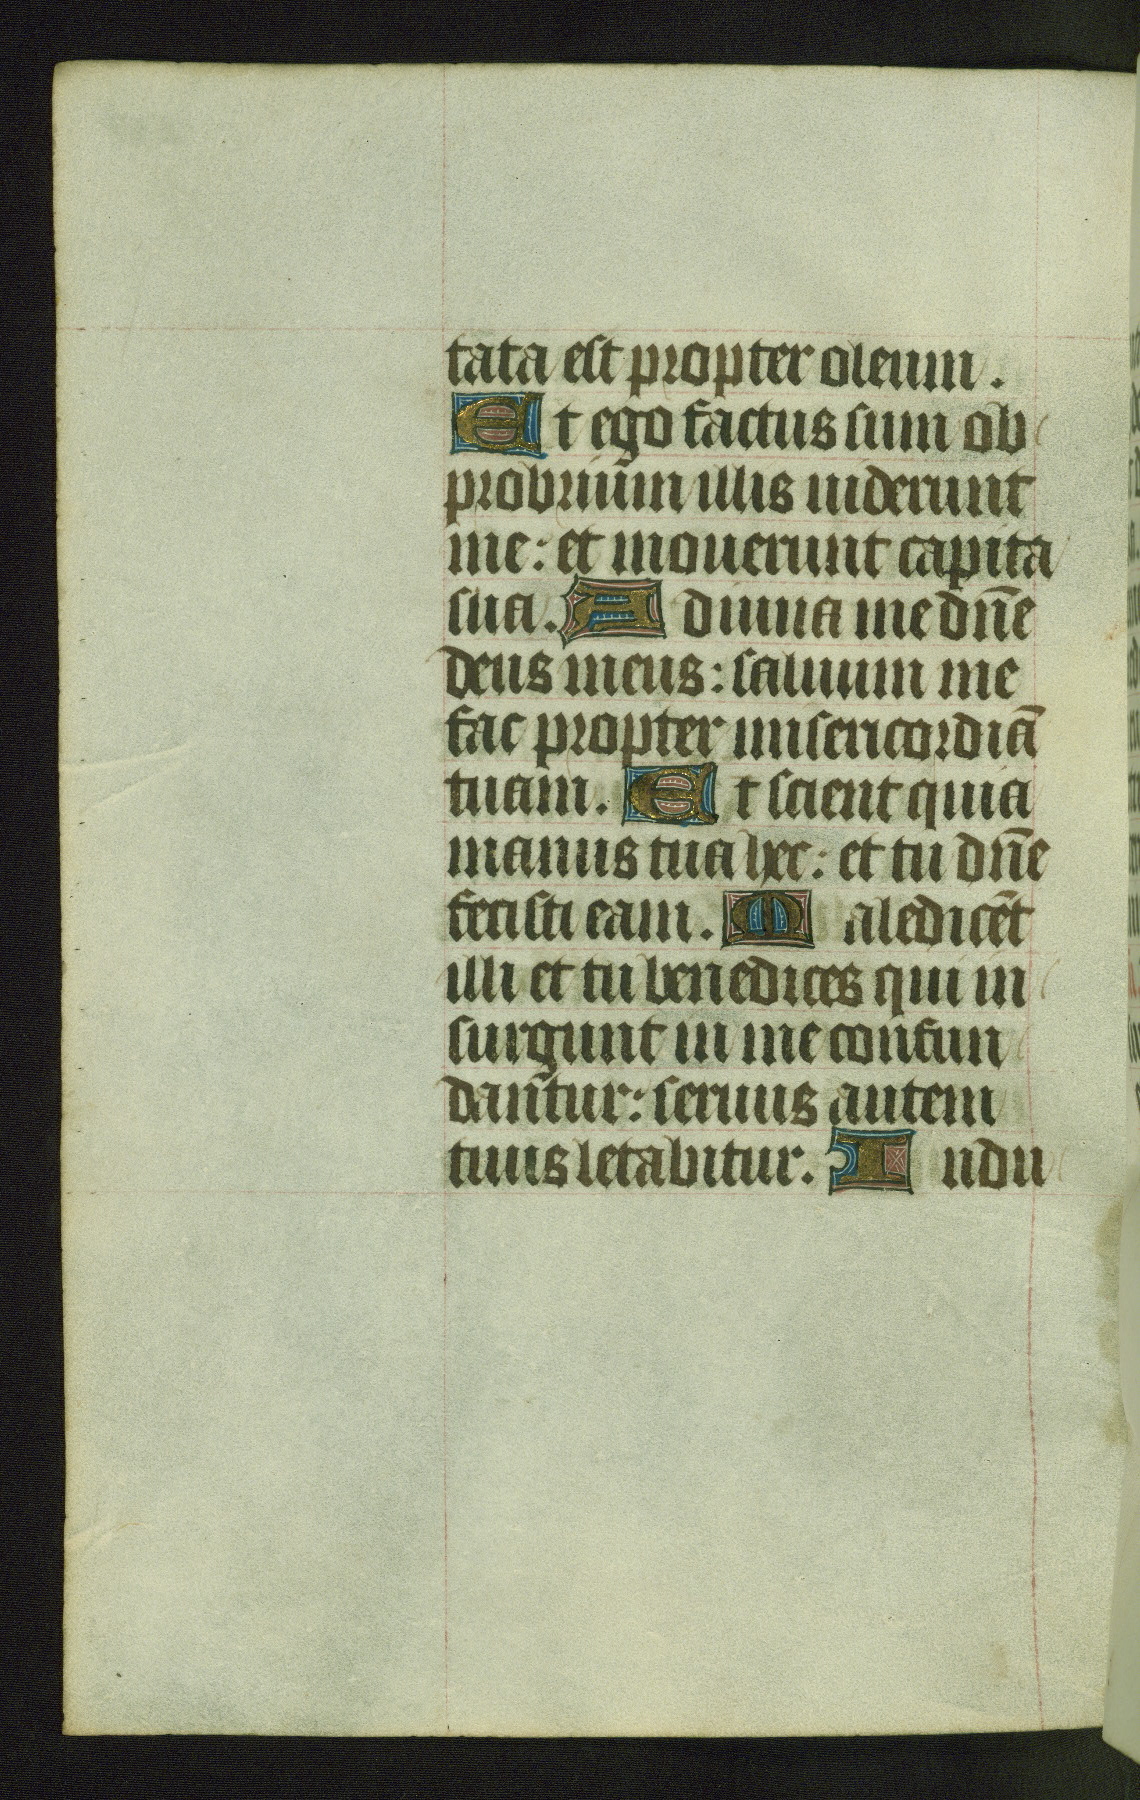 tata est propter oleum.
Et ego factus sum ob
probrium illis uiderunt
me: et mouerunt capita
sua. Adiuua me dn̄e
deus meus: saluum me
fac propter misericordiā
tuam. Et scient quia
manus tua hec: et tu dn̄e
fecisti eam. Maledicēt
illi et tu benedices qui in
surgunt in me confun
dantur: seruus autem
tuus letabitur. Indu